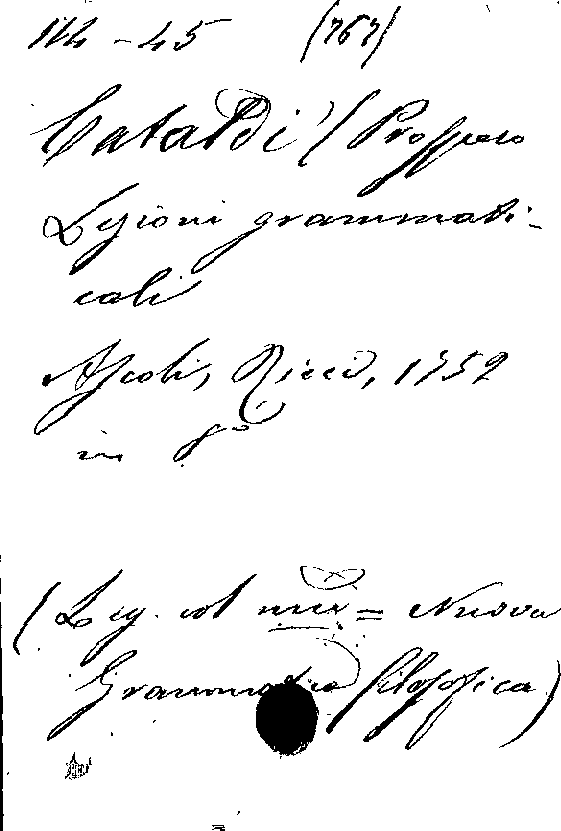 114-45 (767)
Cataldi (Prospero
Lezioni grammati-
cali
Ascoli, Ricci, 1752
in 8°
(Leg. col = Nuova
Grammatica filosofica)